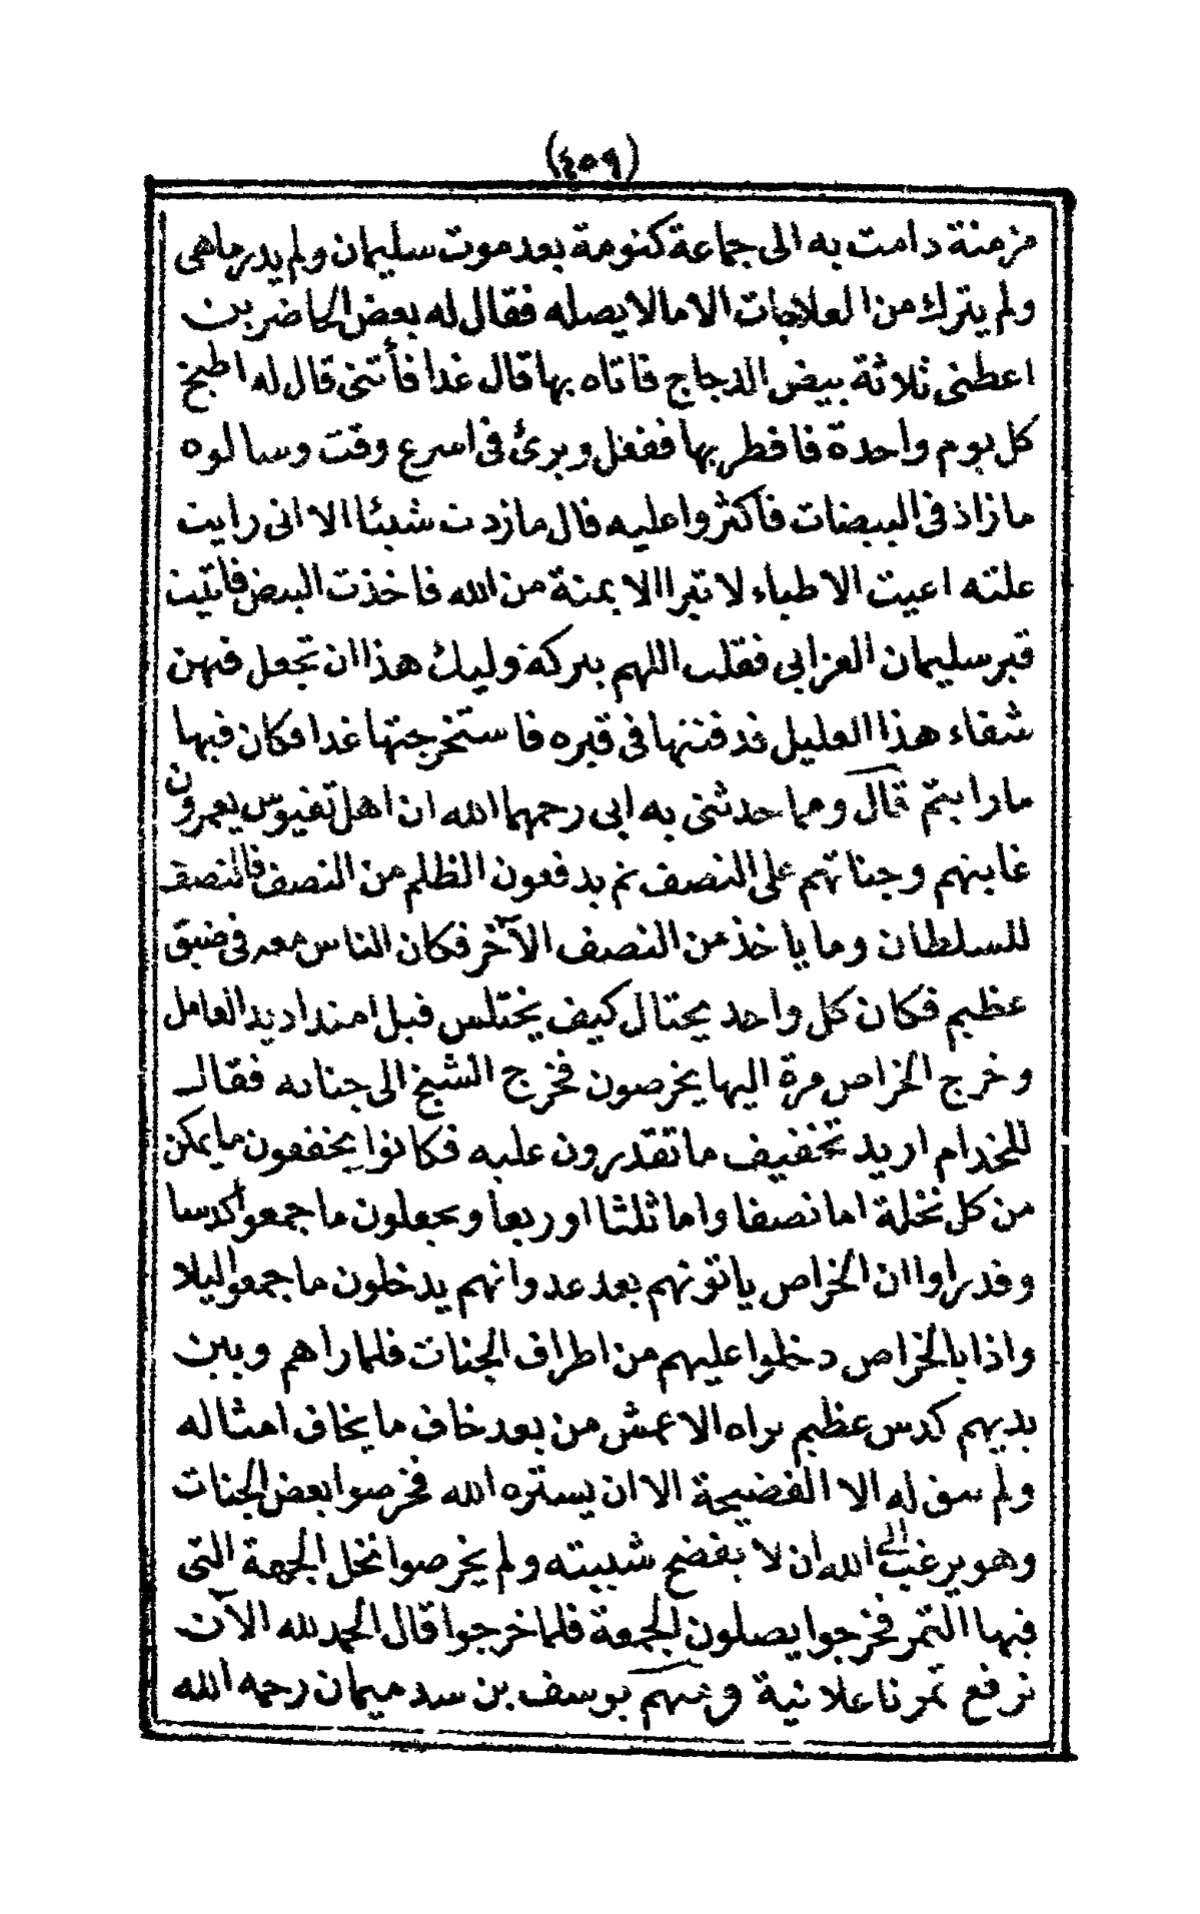 (٤٥٩)
مزمنة دامت به الى جماعة كنومة بعد موت سليمان ولم يدر ماهى
ولم يترك من العلاجات الا مالا يصله فقال له بعض الحاضرين
اعطنى ثلاثة بيض الدجاج فاتاه بها قال غدا فأتنى قال له اطبخ
كل يوم واحدة فافطر بها ففعل وبرئ فى اسرع وقت وسالوه
مازاذ فى البيضات فأكثروا عليه قال مازدت شيئا الا انى رايت
علته اعيت الاطباء لا تبرا الا بمنة من الله فاخذت البيض فاتيت
قبر سليمان العزابى فقلت اللهم ببركة وليك هذا ان تجعل فيهن
شفاء هذا العليل فدفنتها فى قبره فاستخرجتها غدا فكان فيها
مارايتم قال ومما حدثنى به ابى رحمهما الله ان اهل تفيوس يعمرون
غابتهم وجناتهم على النصف ثم يدفعون الظلم من النصف فالنصف
للسلطان وما ياخذ من النصف الآخر فكان الناس معه فى ضيق
عظيم فكان كل واحد يحتال كيف يختلس قبل امتداد يد العامل
وخرج الخراص مرة اليها يخرصون فخرج الشيخ الى جناته فقال
للخدام اريد تخفيف ما تقدرون عليه فكانوا يخففون ما يمكن
من كل نخلة اما نصفا واما ثلثا او ربعا ويجعلون ما جمعوا كدسا
وقد راوا ان الخراص ياتونهم بعد عد وانهم يدخلون ما جمعوا ليلا
واذا بالخراص دخلوا عليهم من اطراف الجنات فلما راهم وبين
يديهم كدس عظيم يراه الاعمش من بعد خاف ما يخاف امثاله
ولم يبق له الا الفضيحة الا ان يستره الله فخرصوا بعض الجنات
وهو يرغب الى الله ان لا يفضح شيبته ولم يخرصوا نخل الجهة التى
فيها التمر فخرجوا يصلون الجمعة فلما خرجوا قال الحمد لله الآن
نرفع تمرنا علانية ومنهم يوسف بن سدميمان رحمه الله